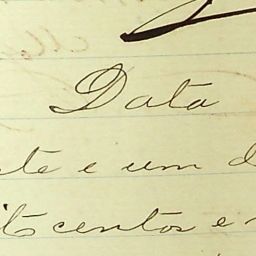 Data
te e um d
itocentos e